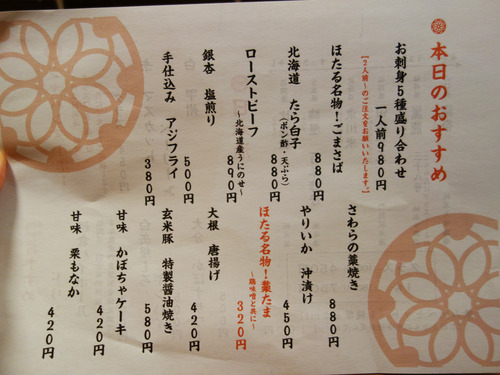 本日のおすすめ
お刺身5種盛り合わせ
一人前980円
【2人前〜のご注文をお願いいたします。】
ほたる名物!ごまさば
880円
北海道 たら白子
(ポン酢・天ぷら)
880円
ローストビーフ
〜北海道産うにのせ〜
890円
銀杏 塩煎り
500円
手仕込み アジフライ
380円
さわらの藁焼き
880円
やりいか 沖漬け
450円
ほたる名物!藁たま
〜鶏味噌と共に〜
320円
大根 唐揚げ
420円
玄米豚 特製醤油焼き
580円
甘味 かぼちゃケーキ
420円
甘味 栗もなか
420円